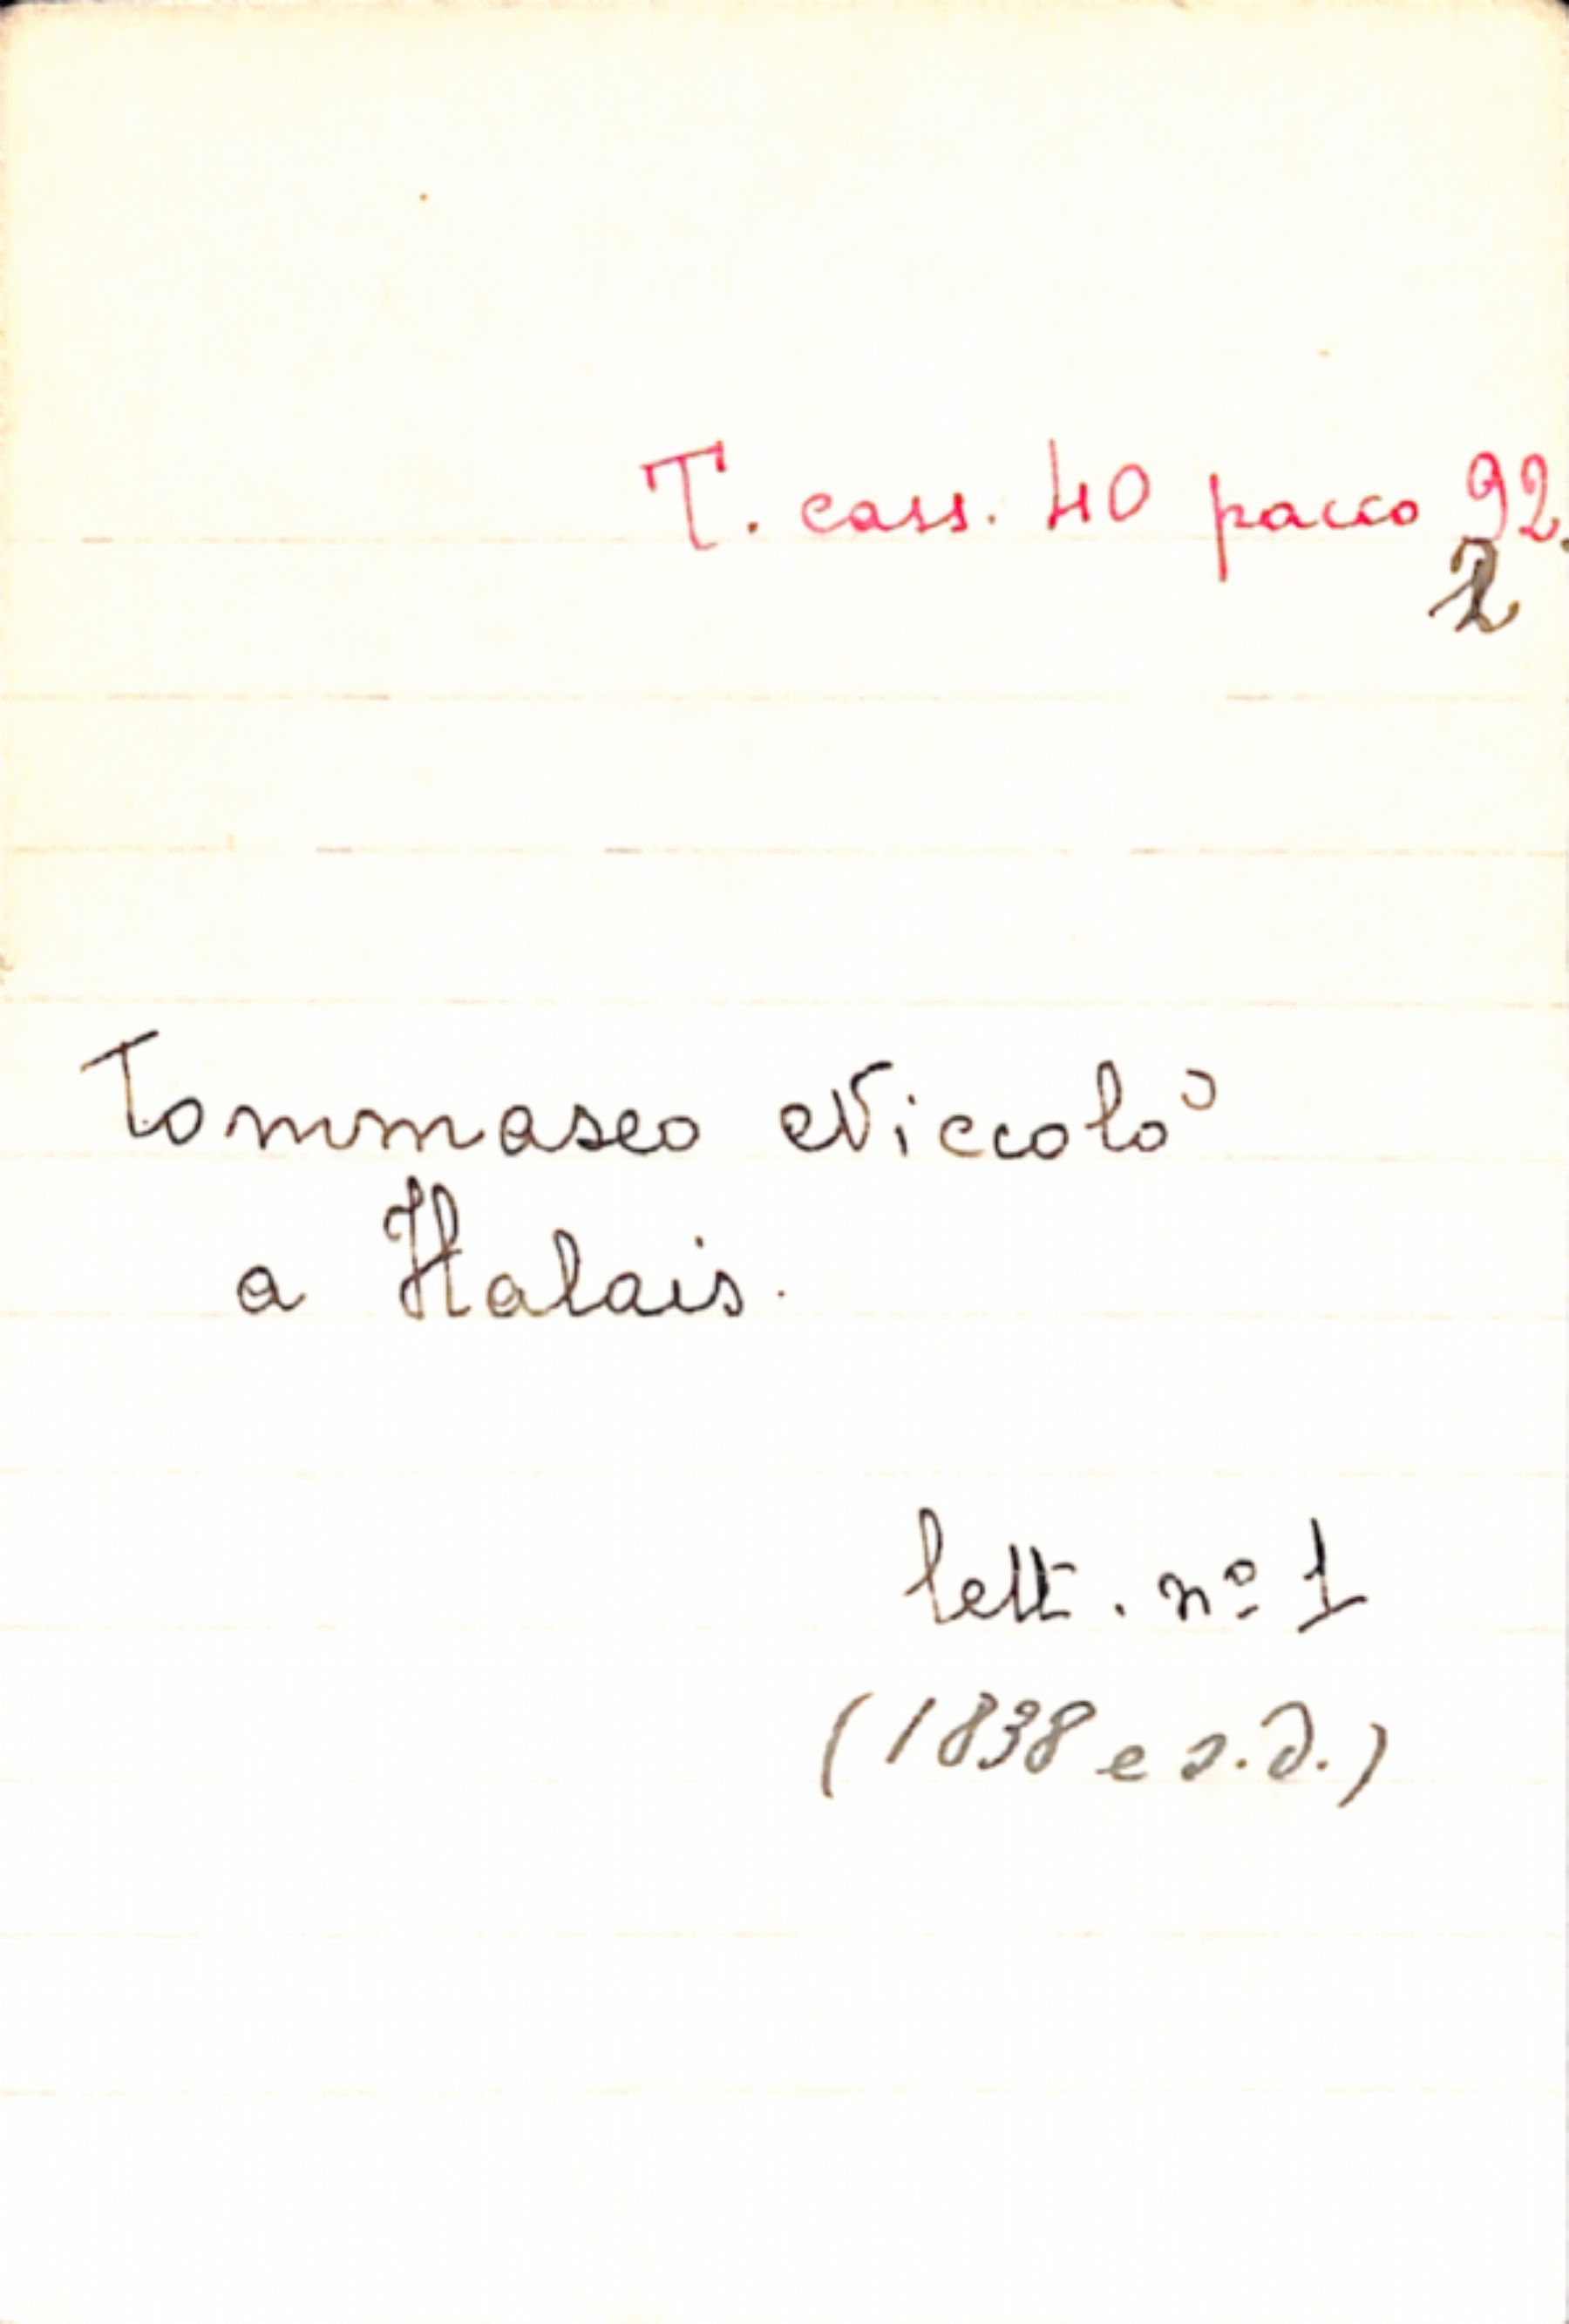 T. cass. 40 pacco 92.
2
Tommaseo Niccolò
a Halais.
lett. nº 1
(1838 e s.d.)